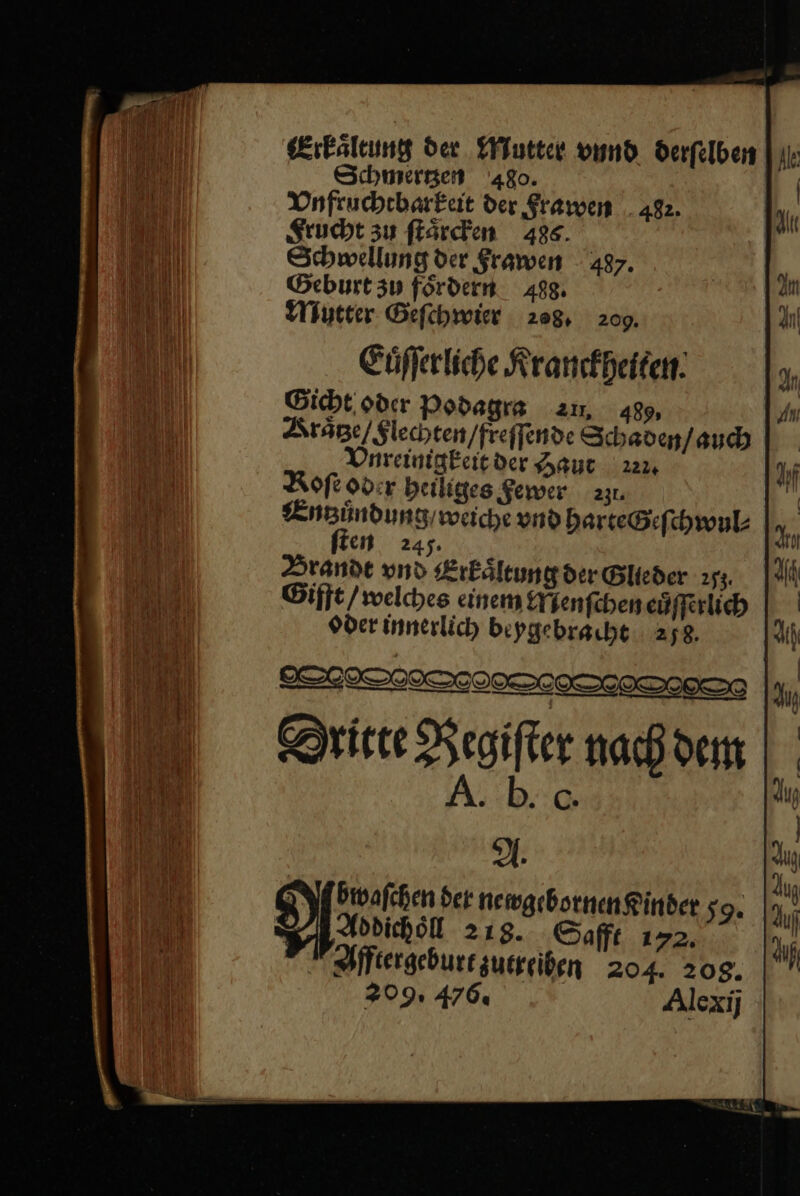 Erkaͤltung der Mutter vnnd derſelben
Schmertzen 480.
Vnfruchtbarkeit der Frawen 482.
Frucht zu ſtaͤrcken 486.
Schwellung der Frawen 487.
Geburt zu foͤrdern 488.
Mutter Geſchwier 208. 209.
Euͤſſerliche Kranckheiten.
Gicht oder Podagra 211, 489,
Kraͤtze/Flechten/freſſende Schaden/auch
Vnreinigkeit der Haut 222.
Roſe oder heiliges Fewer 231.
Entzuͤndung/weiche vnd harte Geſchwul⸗
ſten 245.
Brandt vnd Erkaͤltung der Glieder 253.
Gifft/welches einem Menſchen euͤſſerlich
oder innerlich beygebracht 258.
Dritte Regiſter nach dem
A. b. c.
A.
Abwaſchen der newgebornen Kinder 59.
Addichoͤll 218. Safft 172.
Afftergeburt zutreiben 204. 208.
209. 476.
Alexij